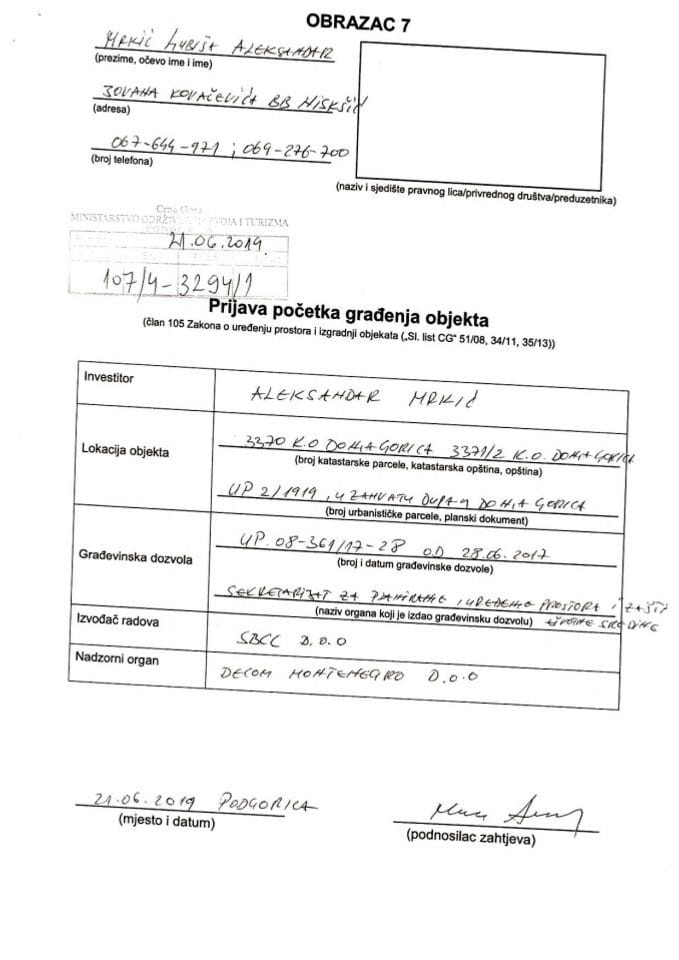 OBRAZAC 7
MRKIĆ LJUBIŠA ALEKSANDAR
(prezime, očevo ime i ime)
JOVANA KOVAČEVIĆA BB NIKŠIĆ
(adresa)
067-644-971 ; 069-276-700
(broj telefona)
(naziv i sjedište pravnog lica/privrednog društva/preduzetnika)
Crna Gora
MINISTARSTVO ODRŽIVOG RAZVOJA I TURIZMA
21.06.2019
107/4-3294/1
Prijava početka građenja objekta
(član 105 Zakona o uređenju prostora i izgradnji objekata („Sl. list CG" 51/08, 34/11, 35/13))
Investitor
ALEKSANDAR MRKIĆ
Lokacija objekta
3370 K.O DONJA GORICA 3371/2 K.O. DONJA GORICA
(broj katastarske parcele, katastarska opština, opština)
UP 2/1919, U ZAHVATU DUP-A DONJA GORICA
(broj urbanističke parcele, planski dokument)
Građevinska dozvola
UP. 08-361/17-28 OD 28.06.2017
(broj i datum građevinske dozvole)
SEKRETARIJAT ZA PLANIRANJE I UREĐENJE PROSTORA I ZAŠTITU
(naziv organa koji je izdao građevinsku dozvolu) ŽIVOTNE SREDINE
Izvođač radova
SBCC D.O.O
Nadzorni organ
DECOM MONTENEGRO D.O.O
21.06.2019 PODGORICA
(mjesto i datum)
(podnosilac zahtjeva)